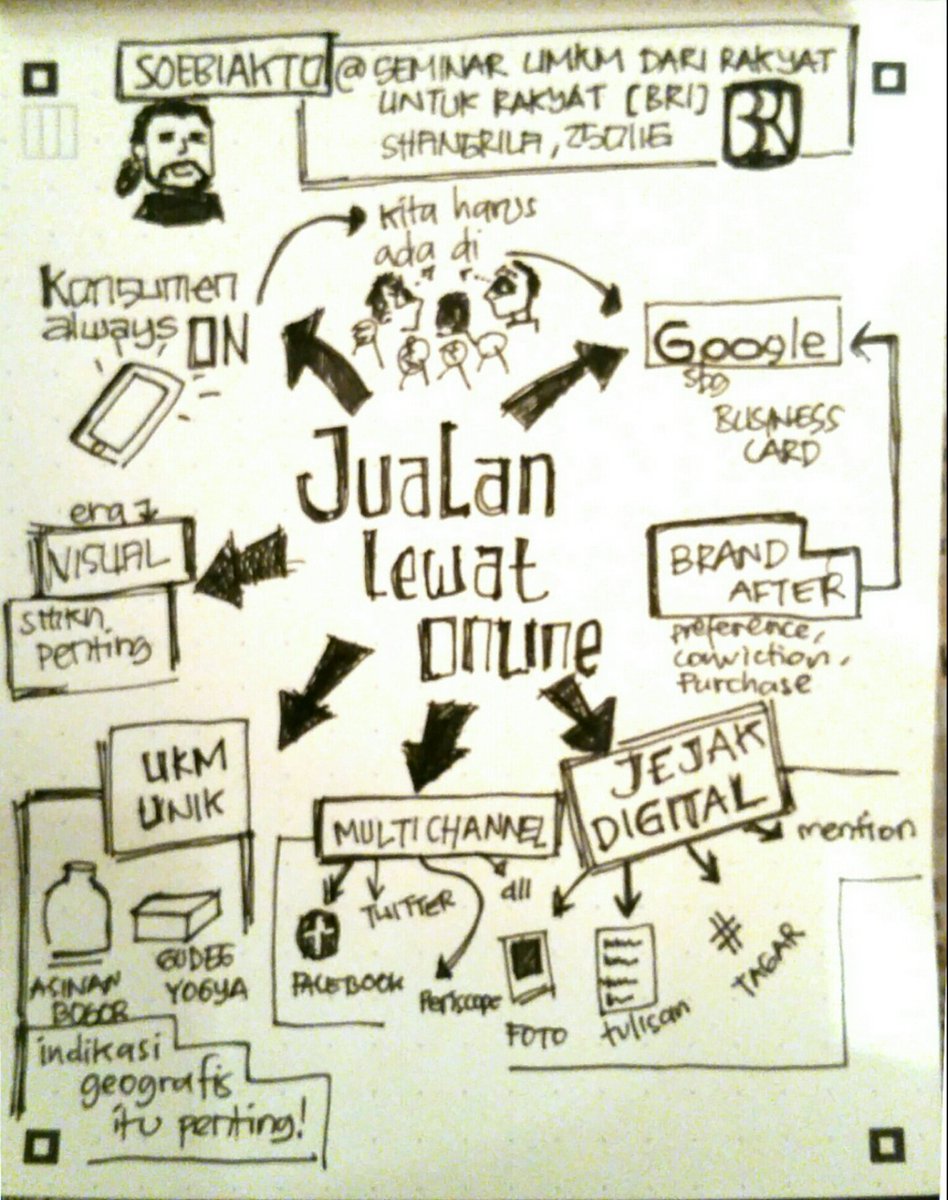 SOEBIAKTO @ SEMINAR UMKM DARI RAKYAT
UNTUK RAKYAT [BRI]
SHANGRILA, 250116
BRI
kita harus
ada di
Konsumen
always ON
Google
sbg
BUSINESS
CARD
JuaLan
Lewat
Online
era
VISUAL
smkn
penting
BRAND
AFTER
preference,
conviction,
Purchase
UKM
UNIK
ASINAN
BOGOR
GUDEG
YOGYA
indikasi
geografis
itu penting!
MULTI CHANNEL
FACEBOOK
TWITTER
Periscope
dll
JEJAK
DIGITAL
FOTO
tulisan
# TAGAR
mention